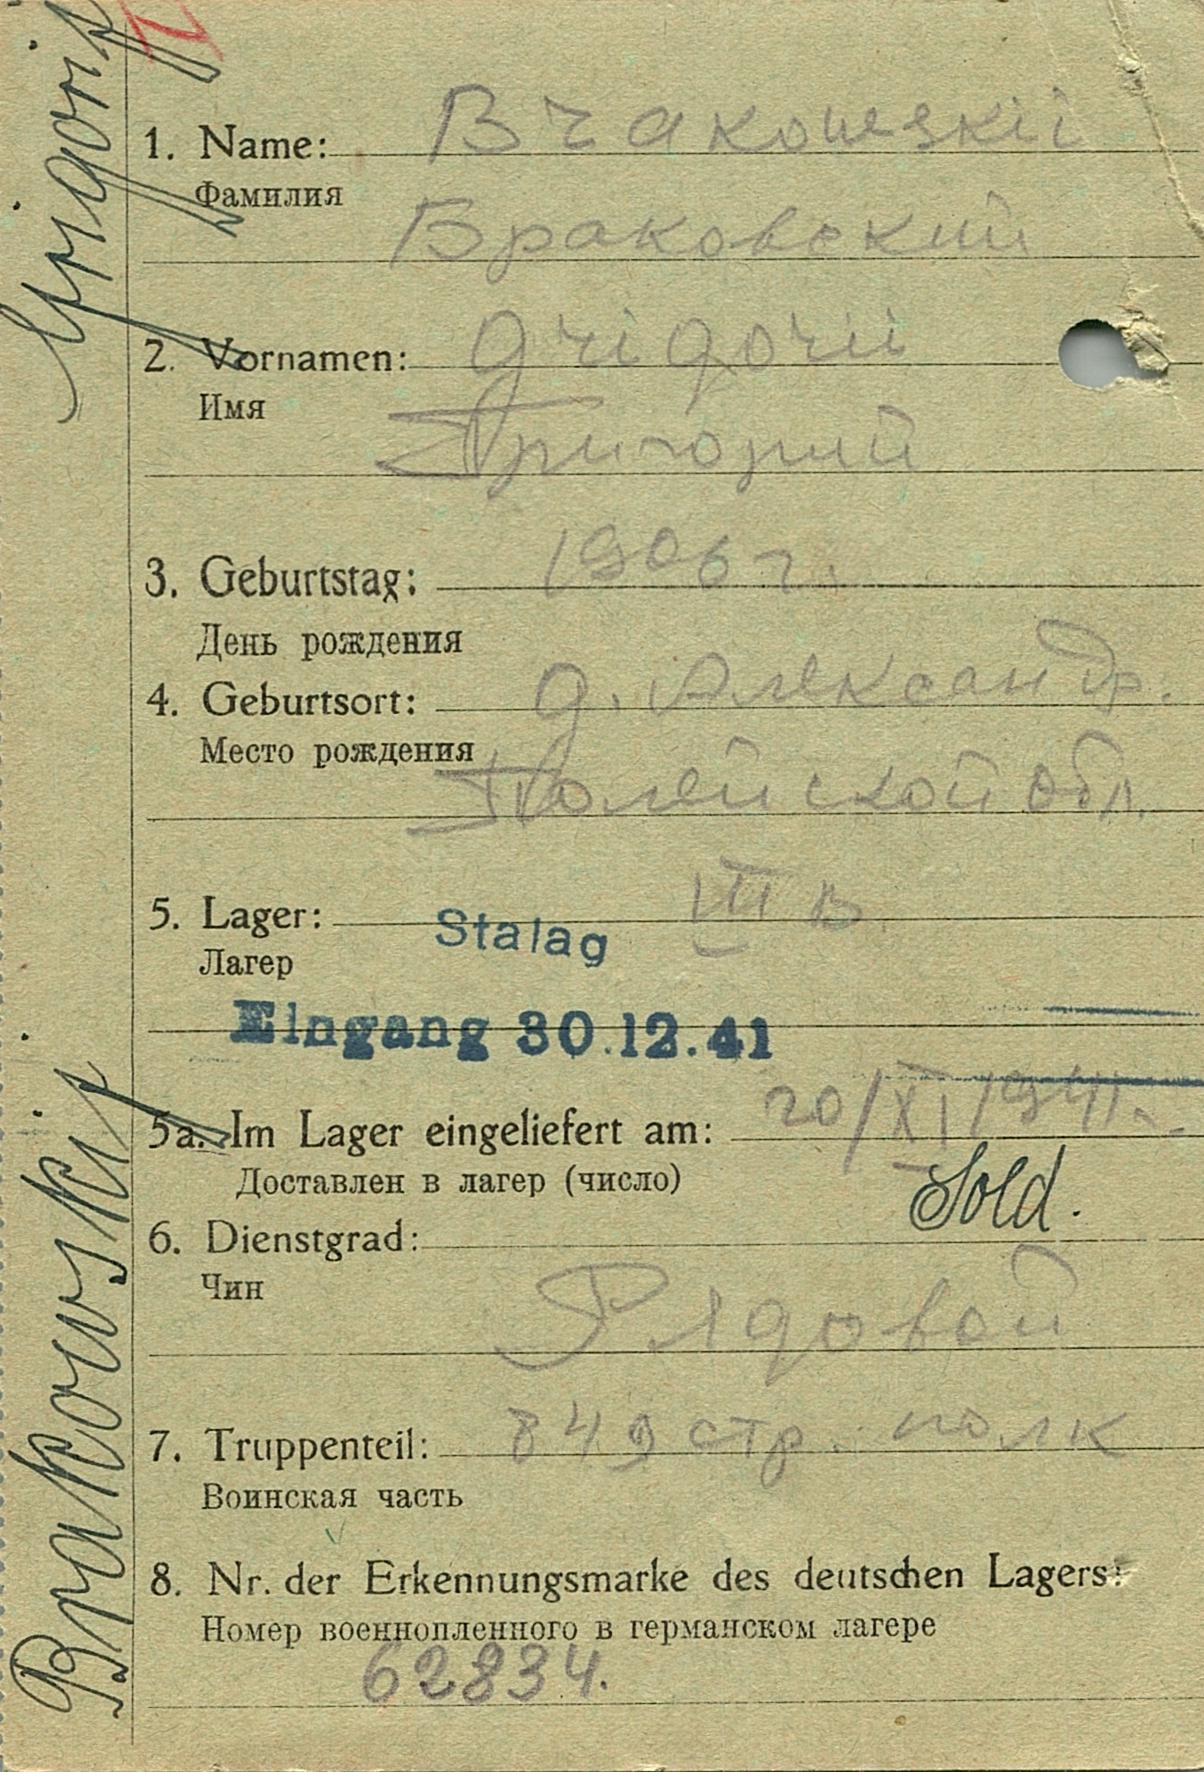 Grigorij
Brakowskij
1. Name: Brakowskii
Фамилия
Браковский
2. Vornamen: Grigorii
Имя
Григорий
3. Geburtstag: 1906 г.
День рождения
4. Geburtsort: д. Александр.
Место рождения
обл.
5. Lager: Stalag III B
Лагер
Eingang 30.12.41
5a. Im Lager eingeliefert am: 20/XI 1941 г.
Доставлен в лагер (число)
Sold.
6. Dienstgrad:
Чин
Рядовой
7. Truppenteil: 849 стр. полк
Воинская часть
8. Nr. der Erkennungsmarke des deutschen Lagers:
Номер военнопленного в германском лагере
62834.